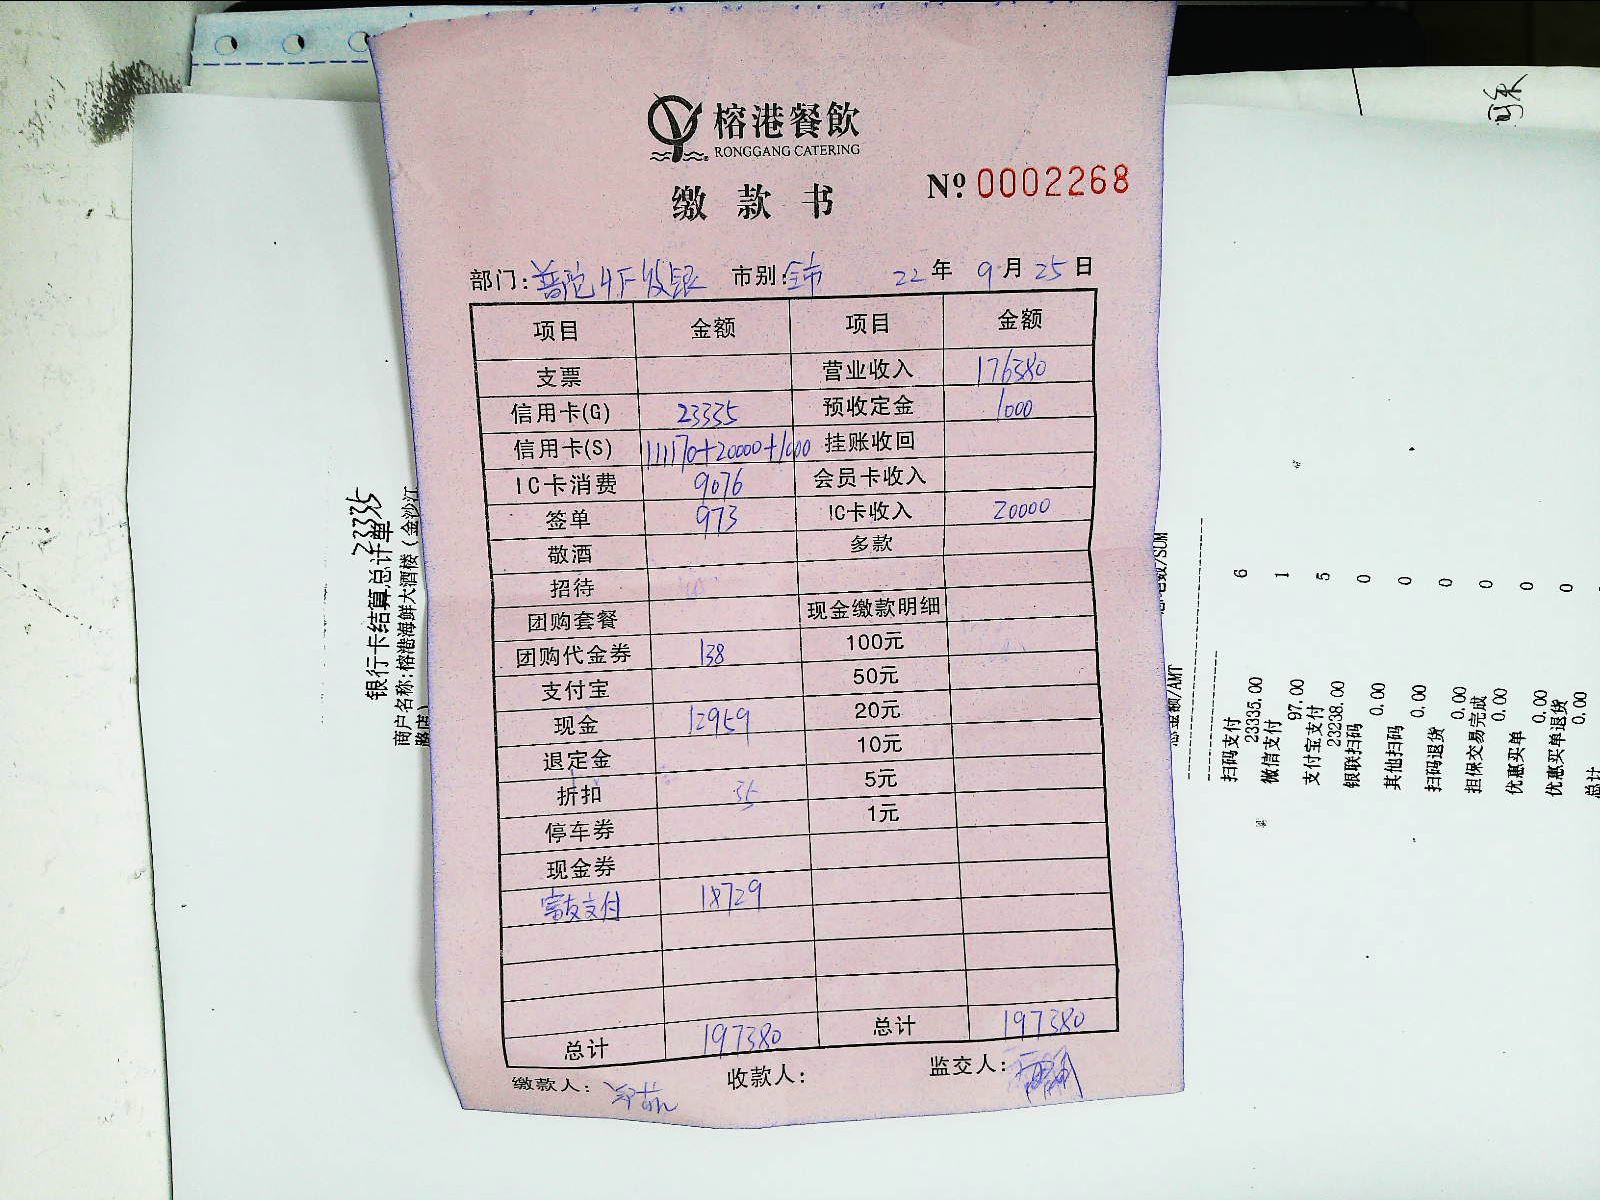 榕港餐飲
RONGGANG CATERING
缴款书
№ 0002268
部门:普陀4F收银 市别:全市 22年 9月25日
项目 金额 项目 金额
支票 营业收入 176380
信用卡(G) 23335 预收定金 1000
信用卡(S) 111170+20000+1000 挂账收回
IC卡消费 9076 会员卡收入
签单 973 IC卡收入 20000
敬酒 多款
招待
团购套餐 现金缴款明细
团购代金券 138 100元
支付宝 50元
现金 12959 20元
退定金 10元
折扣 35 5元
停车券 1元
现金券
富友支付 18729
总计 197380 总计 197380
缴款人: 收款人: 监交人:
23335
银行卡结算总计单
商户名称:榕港海鲜大酒楼(金沙江
路店)
总笔数/SUM
总金额/AMT
扫码支付 6
23335.00
微信支付 1
97.00
支付宝支付 5
23238.00
银联扫码 0
0.00
其他扫码 0
0.00
扫码退货 0
0.00
担保交易完成 0
0.00
优惠买单 0
0.00
优惠买单退货 0
0.00
总计